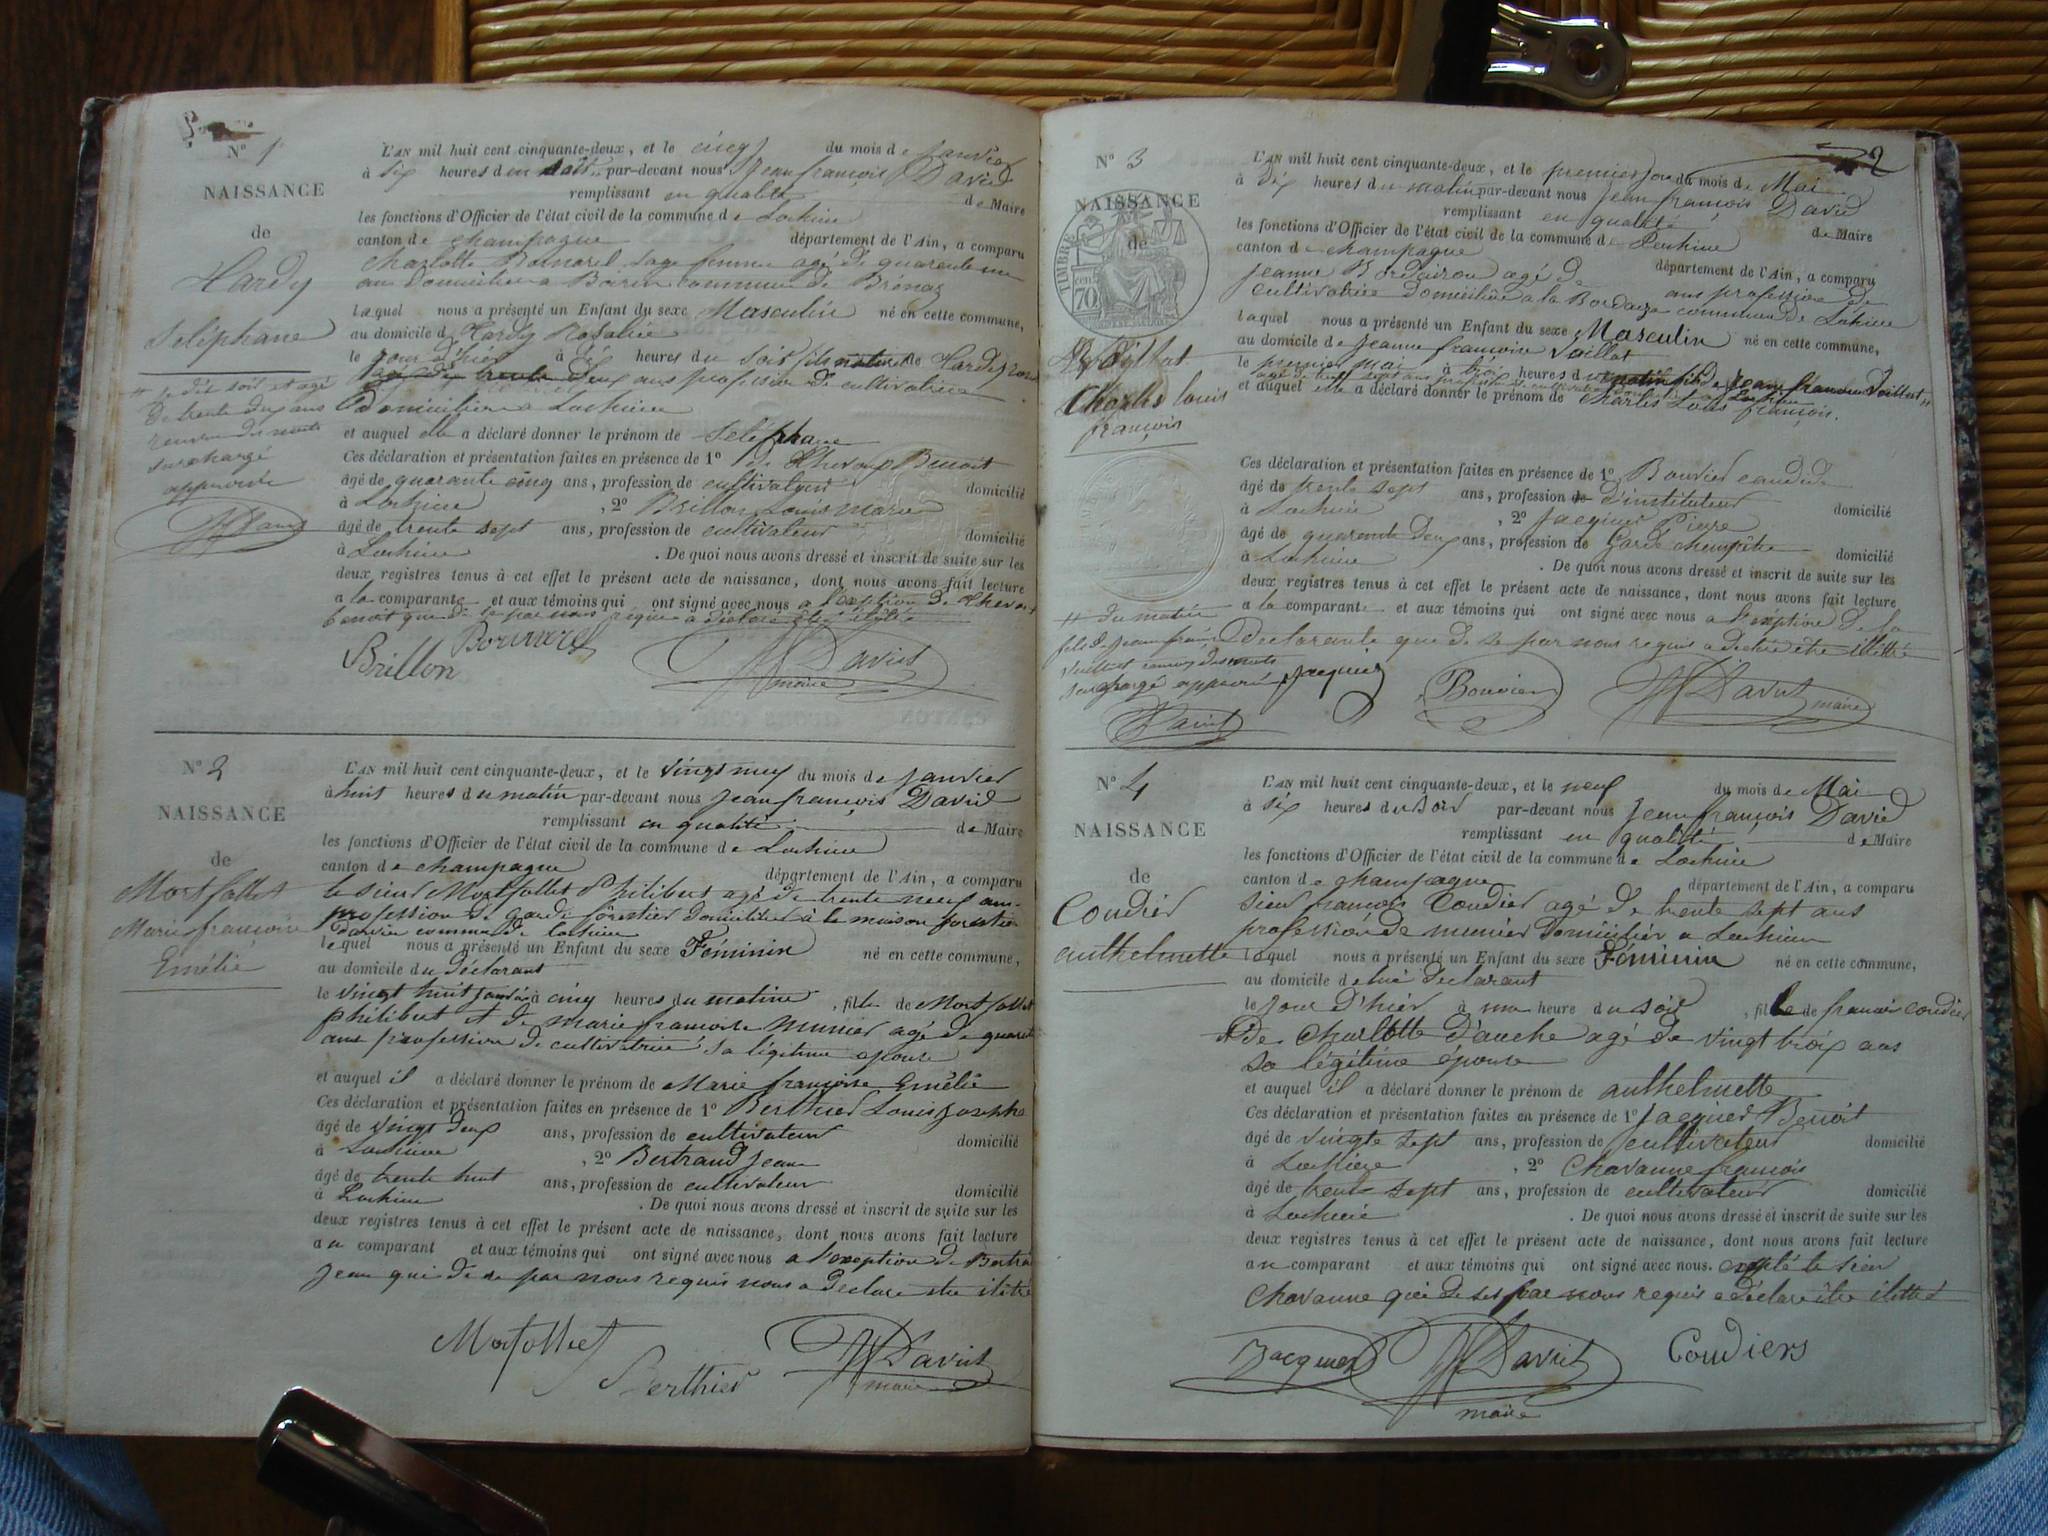 N° 1
NAISSANCE
de
Hardy
Seléphane
L'AN mil huit cent cinquante-deux, et le cinq du mois de janvier
à six heures du par-devant nous Jean françois David
remplissant en qualité de Maire
les fonctions d'Officier de l'état civil de la commune de Lochieu
canton de champagne département de l'Ain, a comparu
Charlotte sage femme agé de quarente
ans domiciliée a commune de Brénaz
laquel nous a présenté un Enfant du sexe Masculin né en cette commune,
au domicile d Hardy Rosalie
le jour d'hier à heures du soir fils naturel de Hardy
deux ans profession de cultivatrice
domiciliée a Lochieu
et auquel elle a déclaré donner le prénom de Seléphane
Ces déclaration et présentation faites en présence de 1° Benoit
âgé de quarante cinq ans, profession de cultivateur domicilié
à Lochieu , 2° Brillon Louis Marie
âgé de trente sept ans, profession de cultivateur domicilié
à Lochieu . De quoi nous avons dressé et inscrit de suite sur les
deux registres tenus à cet effet le présent acte de naissance, dont nous avons fait lecture
a la comparante et aux témoins qui ont signé avec nous a l'exeption de
benoit que de ce par nous requis a déclaré être
de trente deux ans
renvoi des mots
surchargé
approuvée
David
Brillon
David
maire
N° 2
NAISSANCE
de
Mortfollet
Marie françoise
Emélie
L'AN mil huit cent cinquante-deux, et le vingt neuf du mois de janvier
à huit heures du matin par-devant nous Jean françois David
remplissant en qualité de Maire
les fonctions d'Officier de l'état civil de la commune de Lochieu
canton de champagne département de l'Ain, a comparu
le sieur Mortfollet Philibert agé de trente neuf ans
profession de garde forestier domicilié à la maison forestière
commune de lochieu
lequel nous a présenté un Enfant du sexe Féminin né en cette commune,
au domicile du déclarant
le vingt huit janvier à cinq heures du matin , fille de Mortfollet
philibert et de marie françoise Munier agé de quarente
ans profession de cultivatrice sa légitime epouse
et auquel il a déclaré donner le prénom de Marie françoise Emélie
Ces déclaration et présentation faites en présence de 1° Berthier Louis Josephe
âgé de vingt deux ans, profession de cultivateur domicilié
à Lochieu , 2° Bertrand Jean
âgé de trente huit ans, profession de cultivateur domicilié
à Lochieu . De quoi nous avons dressé et inscrit de suite sur les
deux registres tenus à cet effet le présent acte de naissance, dont nous avons fait lecture
au comparant et aux témoins qui ont signé avec nous a l'exeption de Bertrand
Jean qui de ce par nous requis nous a declaré être
Mortfollet
Berthier
David
maire
2
N° 3
NAISSANCE
de
TIMBRE
70
Charles louis
françois
L'AN mil huit cent cinquante-deux, et le premier jour du mois de Mai
à dix heures du matin par-devant nous Jean françois David
remplissant en qualité de Maire
les fonctions d'Officier de l'état civil de la commune de Lochieu
canton de champagne département de l'Ain, a comparu
jeanne agé de ans profession de
cultivatrice domiciliée a la commune de Lochieu
laquel nous a présenté un Enfant du sexe Masculin né en cette commune,
au domicile de Jeanne françoise Vuillot
le premier mai à trois heures du
et auquel elle a déclaré donner le prénom de Charles Louis françois.
Ces déclaration et présentation faites en présence de 1° Bouvier
âgé de trente sept ans, profession d'instituteur domicilié
à Lochieu , 2° Jacquier Pierre
âgé de quarente deux ans, profession de Garde champêtre domicilié
à Lochieu . De quoi nous avons dressé et inscrit de suite sur les
deux registres tenus à cet effet le présent acte de naissance, dont nous avons fait lecture
a la comparante et aux témoins qui ont signé avec nous a l'exeption de la
declarante que de ce par nous requis a declaré être illétré
du matin
surchargé approuvé
David
Jacquier
Bouvier
David
maire
N° 4
NAISSANCE
de
Coudier
anthelmette
L'AN mil huit cent cinquante-deux, et le neuf du mois de Mai
à six heures du soir par-devant nous Jean françois David
remplissant en qualité de Maire
les fonctions d'Officier de l'état civil de la commune de Lochieu
canton de champagne département de l'Ain, a comparu
sieur françois Coudier agé de trente sept ans
profession de munier domicilié a Lochieu
lequel nous a présenté un Enfant du sexe Féminin né en cette commune,
au domicile de lui declarant
le jour d'hier à une heure du soir , fille de françois coudier
et de Charlotte Dauche agé de vingt troix ans
sa légitime épouse
et auquel il a déclaré donner le prénom de anthelmette
Ces déclaration et présentation faites en présence de 1° Jacquier Benoit
âgé de vingte sept ans, profession de cultivateur domicilié
à Lochieu , 2° Chavanne françois
âgé de trente sept ans, profession de cultivateur domicilié
à Lochieu . De quoi nous avons dressé et inscrit de suite sur les
deux registres tenus à cet effet le présent acte de naissance, dont nous avons fait lecture
au comparant et aux témoins qui ont signé avec nous. le sieur
Chavanne qui de ce par nous requis a déclaré être
Jacquier
David
maire
Coudiers